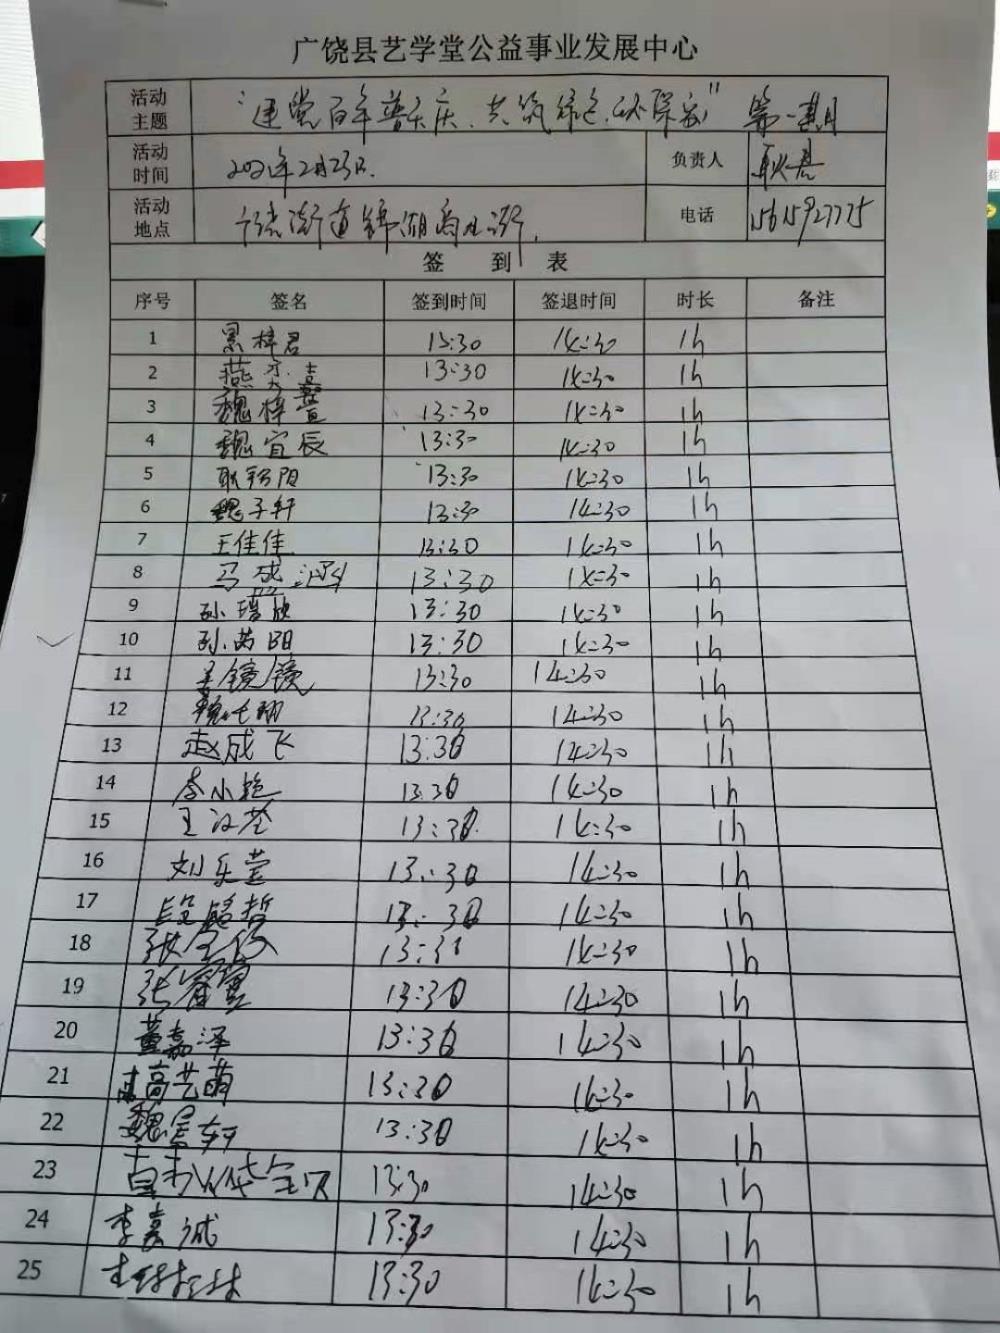 广饶县艺学堂公益事业发展中心
活动主题 "建党百年普天庆、共筑绿色环保家" 第一期
活动时间 2021年2月23日. 负责人 耿君
活动地点 广饶街道锦湖
电话 15615927775
签 到 表
序号 签名 签到时间 签退时间 时长 备注
1 梓君 13:30 14:30 1h
2 燕 13:30 14:30 1h
3 魏梓萱 13:30 14:30 1h
4 魏宜辰 13:30 14:30 1h
5 耿 阳 13:30 14:30 1h
6 魏子轩 13:30 14:30 1h
7 王佳佳 13:30 14:30 1h
8 马 13:30 14:30 1h
9 孙瑞欣 13:30 14:30 1h
10 孙 阳 13:30 14:30 1h
11 镜镜 13:30 14:30 1h
12 13:30 14:30 1h
13 赵成飞 13:30 14:30 1h
14 李小艳 13:30 14:30 1h
15 王 13:30 14:30 1h
16 刘乐萱 13:30 14:30 1h
17 段皓哲 13:30 14:30 1h
18 张 13:30 14:30 1h
19 张睿宸 13:30 14:30 1h
20 董嘉泽 13:30 14:30 1h
21 高艺萌 13:30 14:30 1h
22 魏 轩 13:30 14:30 1h
23 13:30 14:30 1h
24 李嘉诚 13:30 14:30 1h
25 13:30 14:30 1h